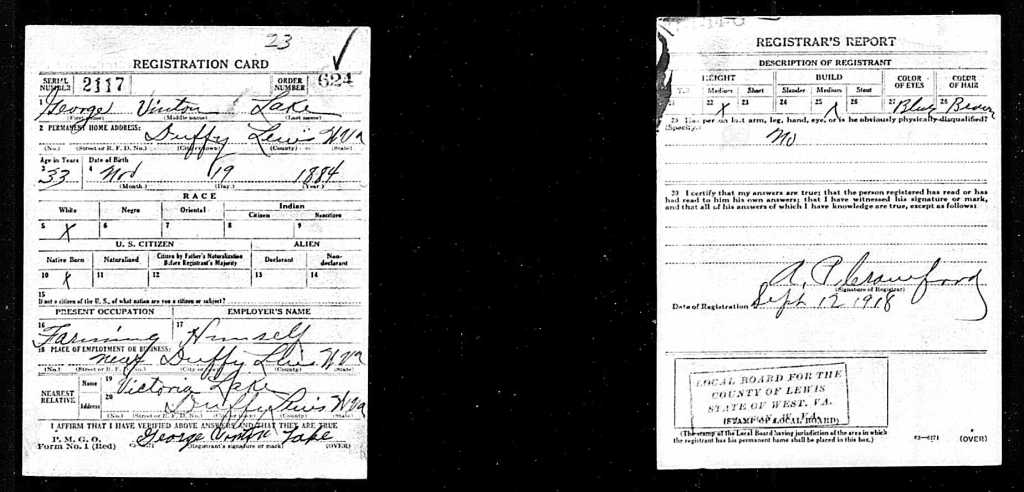 23
REGISTRATION CARD
SERIAL NUMBER 2117 ORDER NUMBER 624
1 George Vinton Lake
(First name) (Middle name) (Last name)
2 PERMANENT HOME ADDRESS: Duffy Lewis W Va
(No.) (Street or R. F. D. No.) (City or town) (County) (State)
Age in Years Date of Birth
3 33 4 Nov 19 1884
(Month.) (Day.) (Year.)
RACE
White Negro Oriental Indian
Citizen Noncitizen
5 X 6 7 8 9
U. S. CITIZEN ALIEN
Native Born Naturalized Citizen by Father's Naturalization Before Registrant's Majority Declarant Non-declarant
10 X 11 12 13 14
15
If not a citizen of the U. S., of what nation are you a citizen or subject?
PRESENT OCCUPATION EMPLOYER'S NAME
16 Farming 17 Himself
18 PLACE OF EMPLOYMENT OR BUSINESS:
near Duffy Lewis W Va
(No.) (Street or R. F. D. No.) (City or town) (County) (State)
NEAREST RELATIVE Name 19 Victoria Lake
Address 20 Duffy Lewis W Va
(No.) (Street or R. F. D. No.) (City or town) (County) (State)
I AFFIRM THAT I HAVE VERIFIED ABOVE ANSWERS AND THAT THEY ARE TRUE
P. M. G. O.
Form No. 1 (Red) George Vinton Lake
(Registrant's signature or mark) (OVER)
REGISTRAR'S REPORT
DESCRIPTION OF REGISTRANT
HEIGHT BUILD COLOR OF EYES COLOR OF HAIR
Tall Medium Short Slender Medium Stout
21 22 X 23 24 25 X 26 27 Blue 28 Brown
29 Has person lost arm, leg, hand, eye, or is he obviously physically disqualified?
(Specify.) No
30 I certify that my answers are true; that the person registered has read or has
had read to him his own answers; that I have witnessed his signature or mark,
and that all of his answers of which I have knowledge are true, except as follows:
A. P. Crawford
(Signature of Registrar)
Date of Registration Sept 12 1918
LOCAL BOARD FOR THE
COUNTY OF LEWIS
STATE OF WEST. VA.
(STAMP OF LOCAL BOARD)
(The stamp of the Local Board having jurisdiction of the area in which
the registrant has his permanent home shall be placed in this box.)
(OVER)